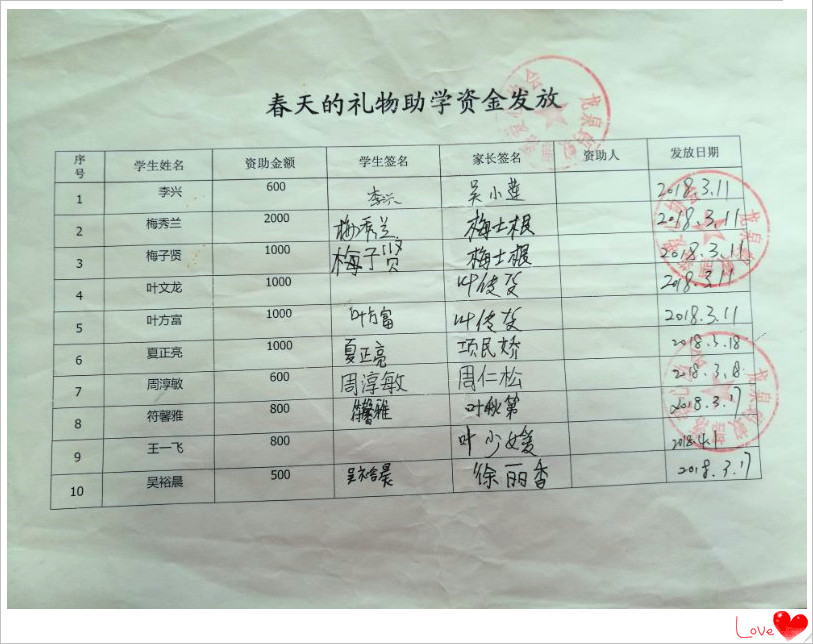 春天的礼物助学资金发放
序号 学生姓名 资助金额 学生签名 家长签名 资助人 发放日期
1 李兴 600 李兴 吴小莲 2018.3.11
2 梅秀兰 2000 梅秀兰 梅士根 2018.3.11
3 梅子贤 1000 梅子贤 梅士根 2018.3.11
4 叶文龙 1000 2018.3.11
5 叶方富 1000 叶方富 2018.3.11
6 夏正亮 1000 夏正亮 项民娇 2018.3.18
7 周淳敏 600 周淳敏 周仁松 2018.3.18
8 符馨雅 800 符馨雅 叶秋第 2018.3.17
9 王一飞 800 叶少媛 2018.4.1
10 吴裕晨 500 吴裕晨 徐丽香 2018.3.17
Love